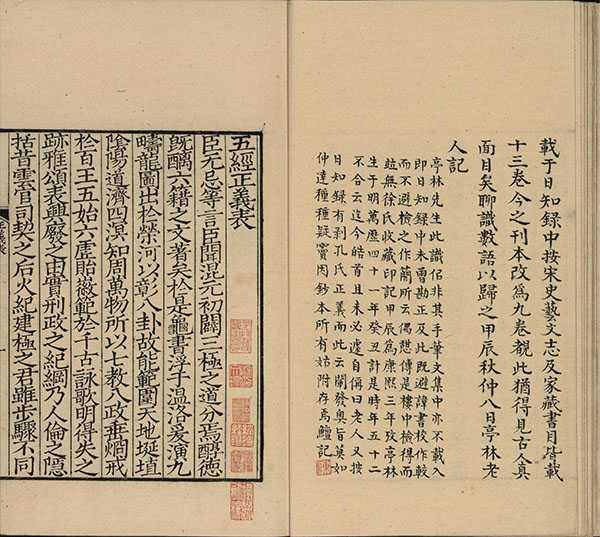 載于日知録中按宋史藝文志及家藏書目皆載
十三卷今之刊本改爲九卷覩此猶得見古人真
面目矣聊識數語以歸之甲辰秋仲八日亭林老
人記
亭林先生此識侣非其手筆文集中亦不載入
即日知録中未嘗勘正及此既避諱書校作較
而不避檢之作簡所云偶憇傳是樓中檢得而
竝無徐氏收藏印記甲辰爲康熙三年攷亭林
生于明萬歷四十一年癸丑計是時年五十二
不合云迄今皓首且未必遽自偁曰老人又按
日知録有刺孔氏正義而此云闡發奥旨莫如
仲達種種疑竇因鈔本所有姑附存焉鱣記
五經正義表
臣无忌等言臣聞混元初闢三極之道分焉醇德
既醨六籍之文著矣於是龜書浮于温洛爰演九
疇龍圖出於榮河以彰八卦故能範圍天地埏埴
隂陽道濟四溟知周萬物所以七教八政垂烱戒
於百王五始六虚貽徽範於千古詠歌明得失之
跡雅頌表興廢之由實刑政之紀綱乃人倫之隱
括昔雲官司契之后火紀建極之君雖步驟不同